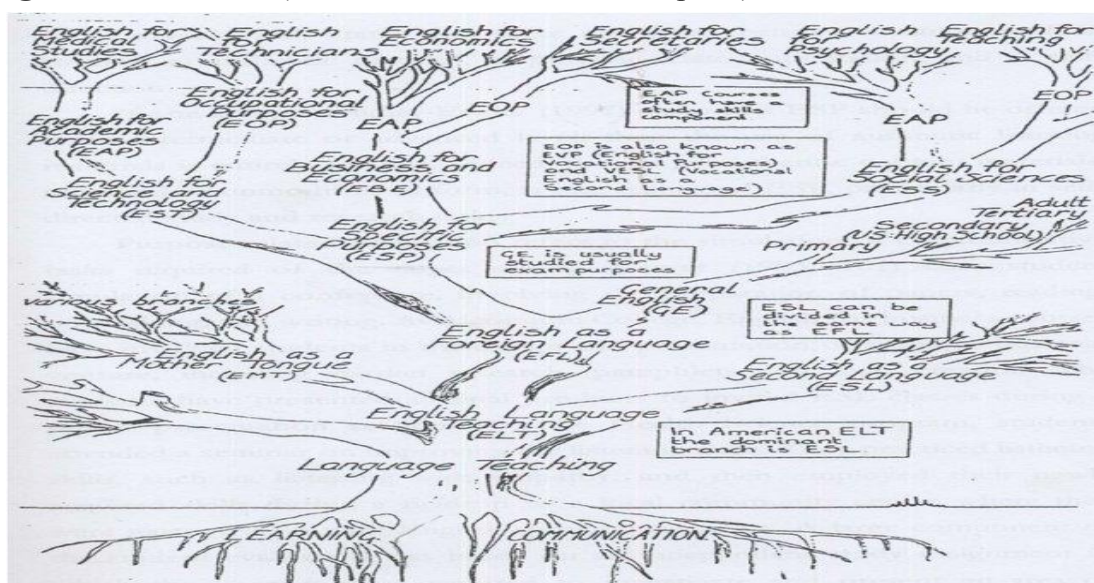 English for
Medical
Studies
English
for
Technicians
English for
Economics
English for
Secretaries
English
for
Psychology
English for
Teaching
English for
Occupational
Purposes
(EOP)
EAP
EOP
EAP courses
often have a
study skills
component
EAP
EOP
English for
Academic
Purposes
(EAP)
English for
Business and
Economics
(EBE)
EOP is also known as
EVP (English for
Vocational Purposes)
and VESL (Vocational
English as a
Second Language)
English for
Science and
Technology
(EST)
English for
Social Sciences
(ESS)
English for
Specific
Purposes
(ESP)
GE is usually
studied for
exam purposes
Primary
Secondary
(US: High School)
Adult
Tertiary
General
English
(GE)
various branches
English as a
Mother Tongue
(EMT)
English as a
Foreign Language
(EFL)
ESL is
divided in
the same way
as EFL
English as a
Second Language
(ESL)
English Language
Teaching
(ELT)
In American ELT
the dominant
branch is ESL
Language Teaching
LEARNING
COMMUNICATION